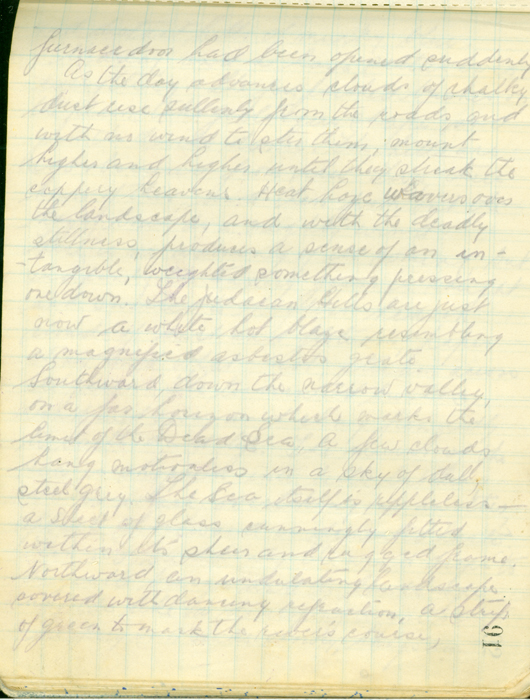 furnace door had been opened suddenly
As the day advances clouds of chalky
dust rise sullenly from the roads and
with no wind to stir them, mount
higher and higher until they streak the
coppery heavens. Heat haze wavers over
the landscape, and with the deadly
stillness, produces a sense of an in-
-tangible, weighted something pressing
one down. The Judaean Hills are just
now a white hot blaze resembling
a magnified asbestos grate.
Southward, down the narrow valley,
on a far horizon which marks the
limit of the Dead Sea, a few clouds
hang motionless in a sky of dull,
steel grey. The Sea itself is rippleless—
a sheet of glass cunningly fitted
within its sheer and rugged frame.
Northward an undulating landscape
covered with dancing refraction, a strip
of green to mark the river's course,
91